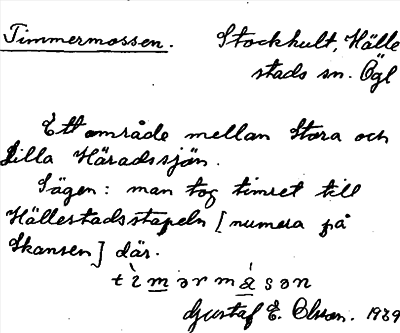 Timmermossen. Stockhult, Hälle
stads sn. Ögl
Ett område mellan Stora och
Lilla Häradssjön.
Sägen: man tog timret till
Hällestadsstapeln [numera på
Skansen] där.
tìmərmåsən
Gustaf E. Olsson. 1939